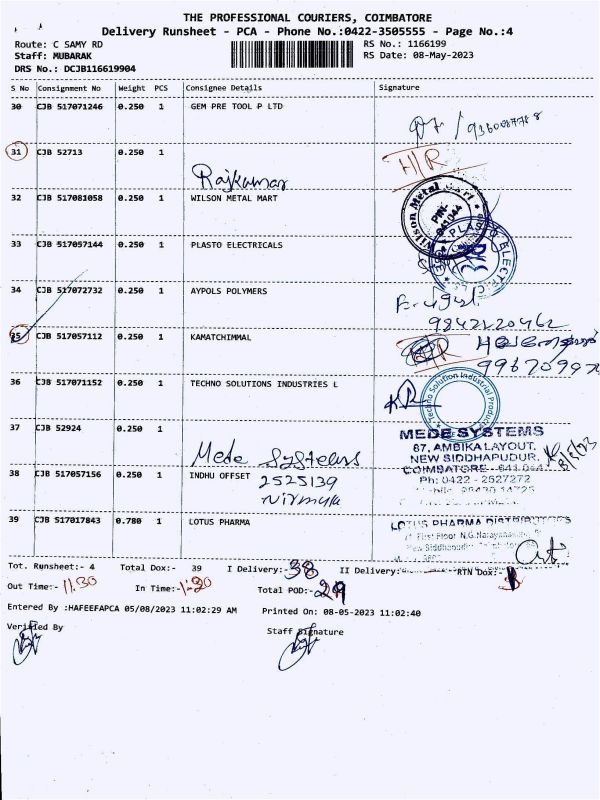 THE PROFESSIONAL COURIERS, COIMBATORE
Delivery Runsheet - PCA - Phone No.:0422-3505555 - Page No.:4
Route: C SAMY RD RS No.: 1166199
Staff: MUBARAK RS Date: 08-May-2023
DRS No.: DCJB116619904
S No Consignment No Weight PCS Consignee Details Signature
30 CJB 517071246 0.250 1 GEM PRE TOOL P LTD
31 CJB 52713 0.250 1 H/R
Rajkumar
32 CJB 517081058 0.250 1 WILSON METAL MART
Wilson Metal Mart PIN- 641044
33 CJB 517057144 0.250 1 PLASTO ELECTRICALS
34 CJB 517072732 0.250 1 AYPOLS POLYMERS
35 CJB 517057112 0.250 1 KAMATCHIMMAL
36 CJB 517071152 0.250 1 TECHNO SOLUTIONS INDUSTRIES L
Techno Solution Industrial Products
37 CJB 52924 0.250 1
Mede Systems
MEDE SYSTEMS
67, AMBIKA LAYOUT,
NEW SIDDHAPUDUR,
COIMBATORE - 641 044
Ph: 0422 - 2527272
8/5/23
38 CJB 517057156 0.250 1 INDHU OFFSET
2525139
Nirmala
39 CJB 517017843 0.780 1 LOTUS PHARMA
LOTUS PHARMA DISTRIBUTORS
Tot. Runsheet:- 4 Total Dox:- 39 I Delivery:- 38 II Delivery: RTN Dox:- 1
Out Time:- 11.30 In Time:- 1.20 Total POD:- 29
Entered By :HAFEEFAPCA 05/08/2023 11:02:29 AM Printed On: 08-05-2023 11:02:40
Verified By Staff Signature